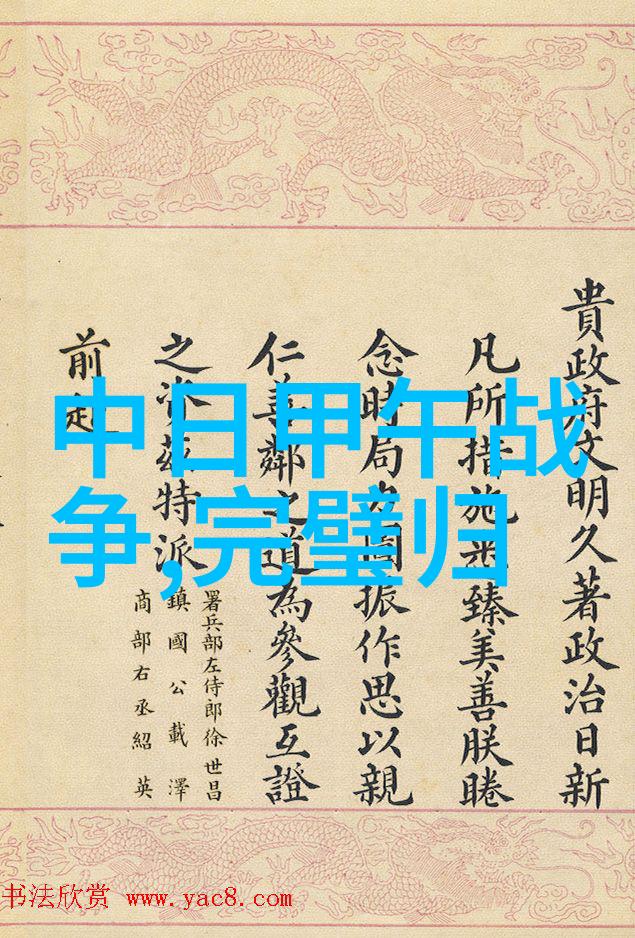 貴政府文明久著政治日新
凡所措施臻美善朕睠
念時局力圖振作思以親
仁善鄰之道為參觀互證
之資茲特派
署兵部左侍郎徐世昌
鎮國公載澤
商部右丞紹英
前赴
中日甲午战
争,完璧归
书法欣赏 www.yac8.com